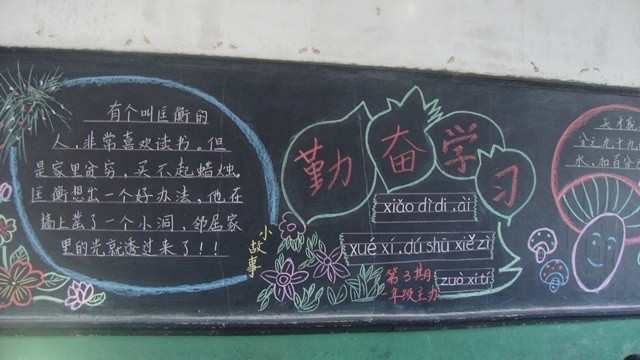 有个叫匡衡的
人，非常喜欢读书。但
是家里贫穷，买不起蜡烛。
匡衡想出一个好办法，他在
墙上凿了一个小洞，邻居家
里的光就透过来了！！！
小故事
勤奋学习
xiǎo dì di ,ài
xué xí ,dú shū xiě zì
zuò xí tí
第3期
一年级主办